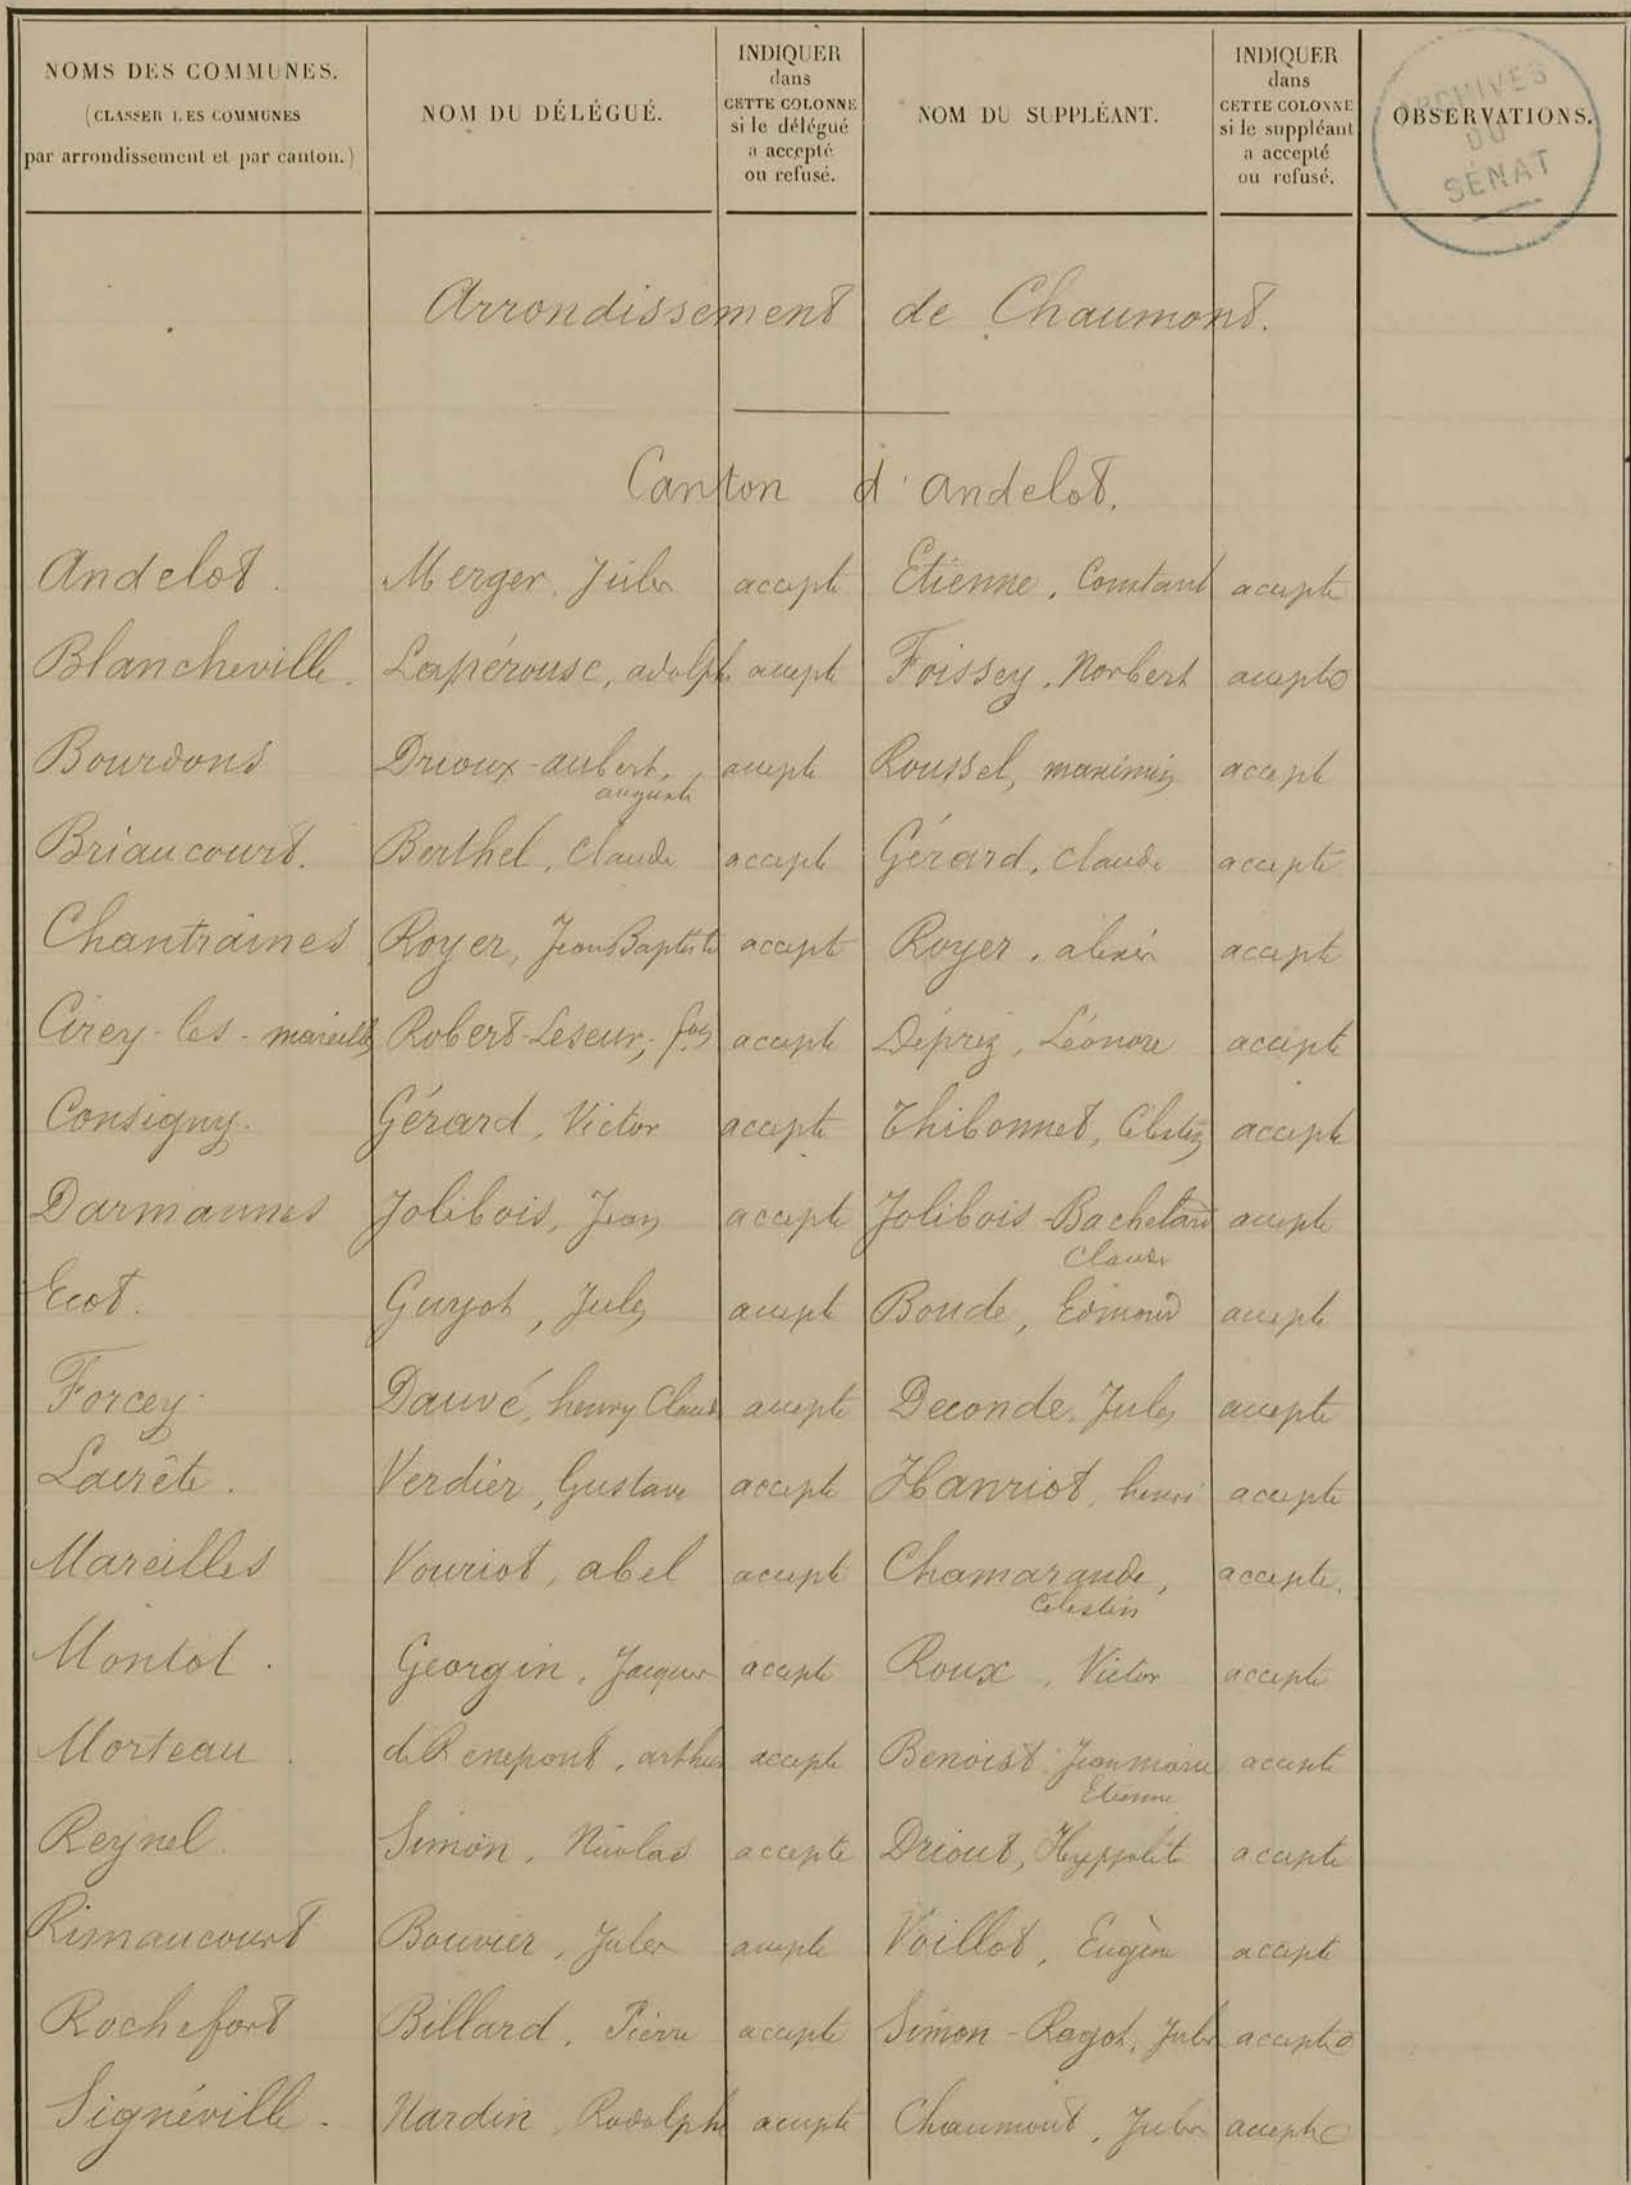 NOMS DES COMMUNES.
(CLASSER LES COMMUNES
par arrondissement et par canton.)
NOM DU DÉLÉGUÉ.
INDIQUER
dans
CETTE COLONNE
si le délégué
a accepté
ou refusé.
NOM DU SUPPLÉANT.
INDIQUER
dans
CETTE COLONNE
si le suppléant
a accepté
ou refusé.
OBSERVATIONS.
ARCHIVES
DU
SÉNAT
Arrondissement de Chaumont.
Canton d'Andelot.
Andelot. Merger, Jules accepte Etienne, Constant accepte
Blancheville. Lapérouse, adolphe accepte Foissey, Norbert accepte
Bourdons Drioux-aubert, accepte Roussel, maximin accepte
auguste
Briaucourt. Berthel, Claude accepte Gérard, Claude accepte
Chantraines Royer, Jean Baptiste accepte Royer, alexis accepte
Cirey-les-mareilles Robert-Leseur, fois accepte Déprez, Léonore accepte
Consigny. Gérard, Victor accepte Thibonnet, Célestin accepte
Darmannes Jolibois, Jean accepte Jolibois-Bachelard accepte
Claude
Ecot. Guyot, Jules accepte Boude, Edmond accepte
Forcey Dauvé, henry Claude accepte Deconde, Jules accepte
Lacrête. Verdier, Gustave accepte Hanriot, henri accepte
Mareilles Vouriot, abel accepte Chamarande, accepte.
Célestin
Montot. Georgin, Jacques accepte Roux, Victor accepte
Morteau. de Renepont, arthur accepte Benoist Jean marie accepte
Etienne
Reynel. Simon, Nicolas accepte Driout, Hyppolite accepte
Rimaucourt Bouvier, Jules accepte Voillot, Eugène accepte
Rochefort Billard, Pierre accepte Simon-Ragot, Jules accepte
Signéville. Nardin, Rodolphe accepte Chaumont, Jules accepte